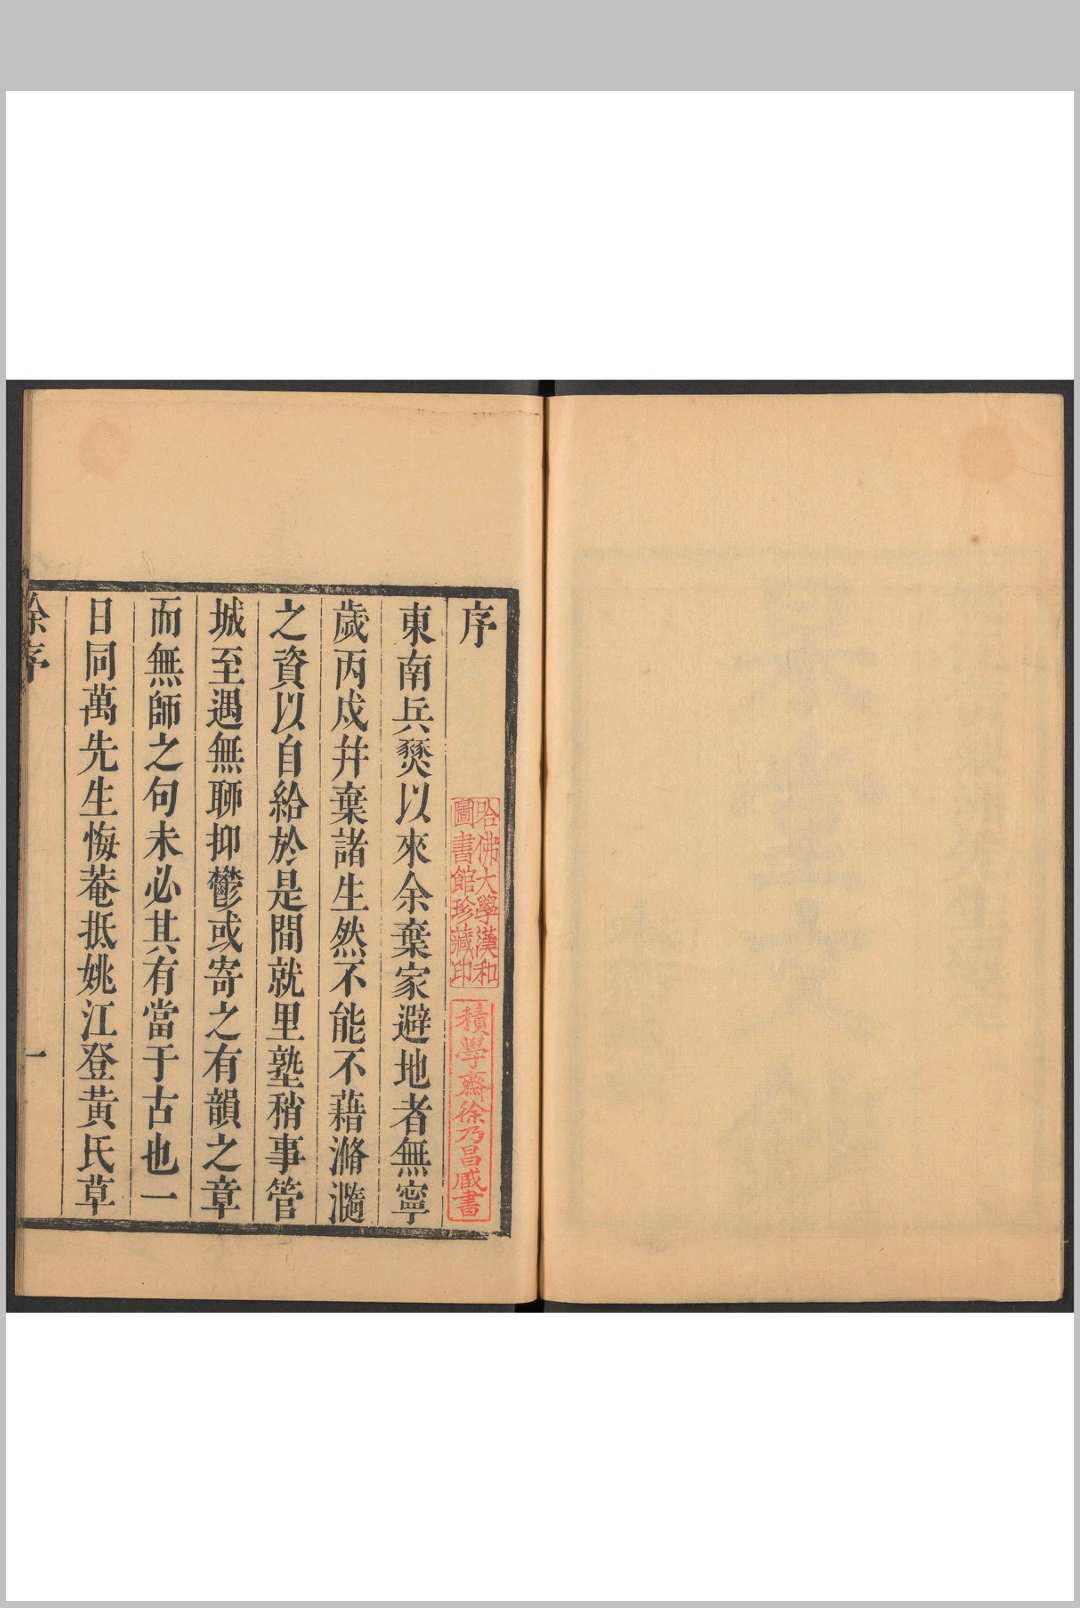 序
東南兵燹以來余棄家避地者無寧
歲丙戍幷棄諸生然不能不藉滫瀡
之資以自給於是間就里塾稍事管
城至遇無聊抑鬱或寄之有韻之章
而無師之句未必其有當于古也一
日同萬先生悔菴抵姚江登黃氏草
徐序
一
哈佛大學漢和
圖書館珍藏印
積學齋徐乃昌臧書